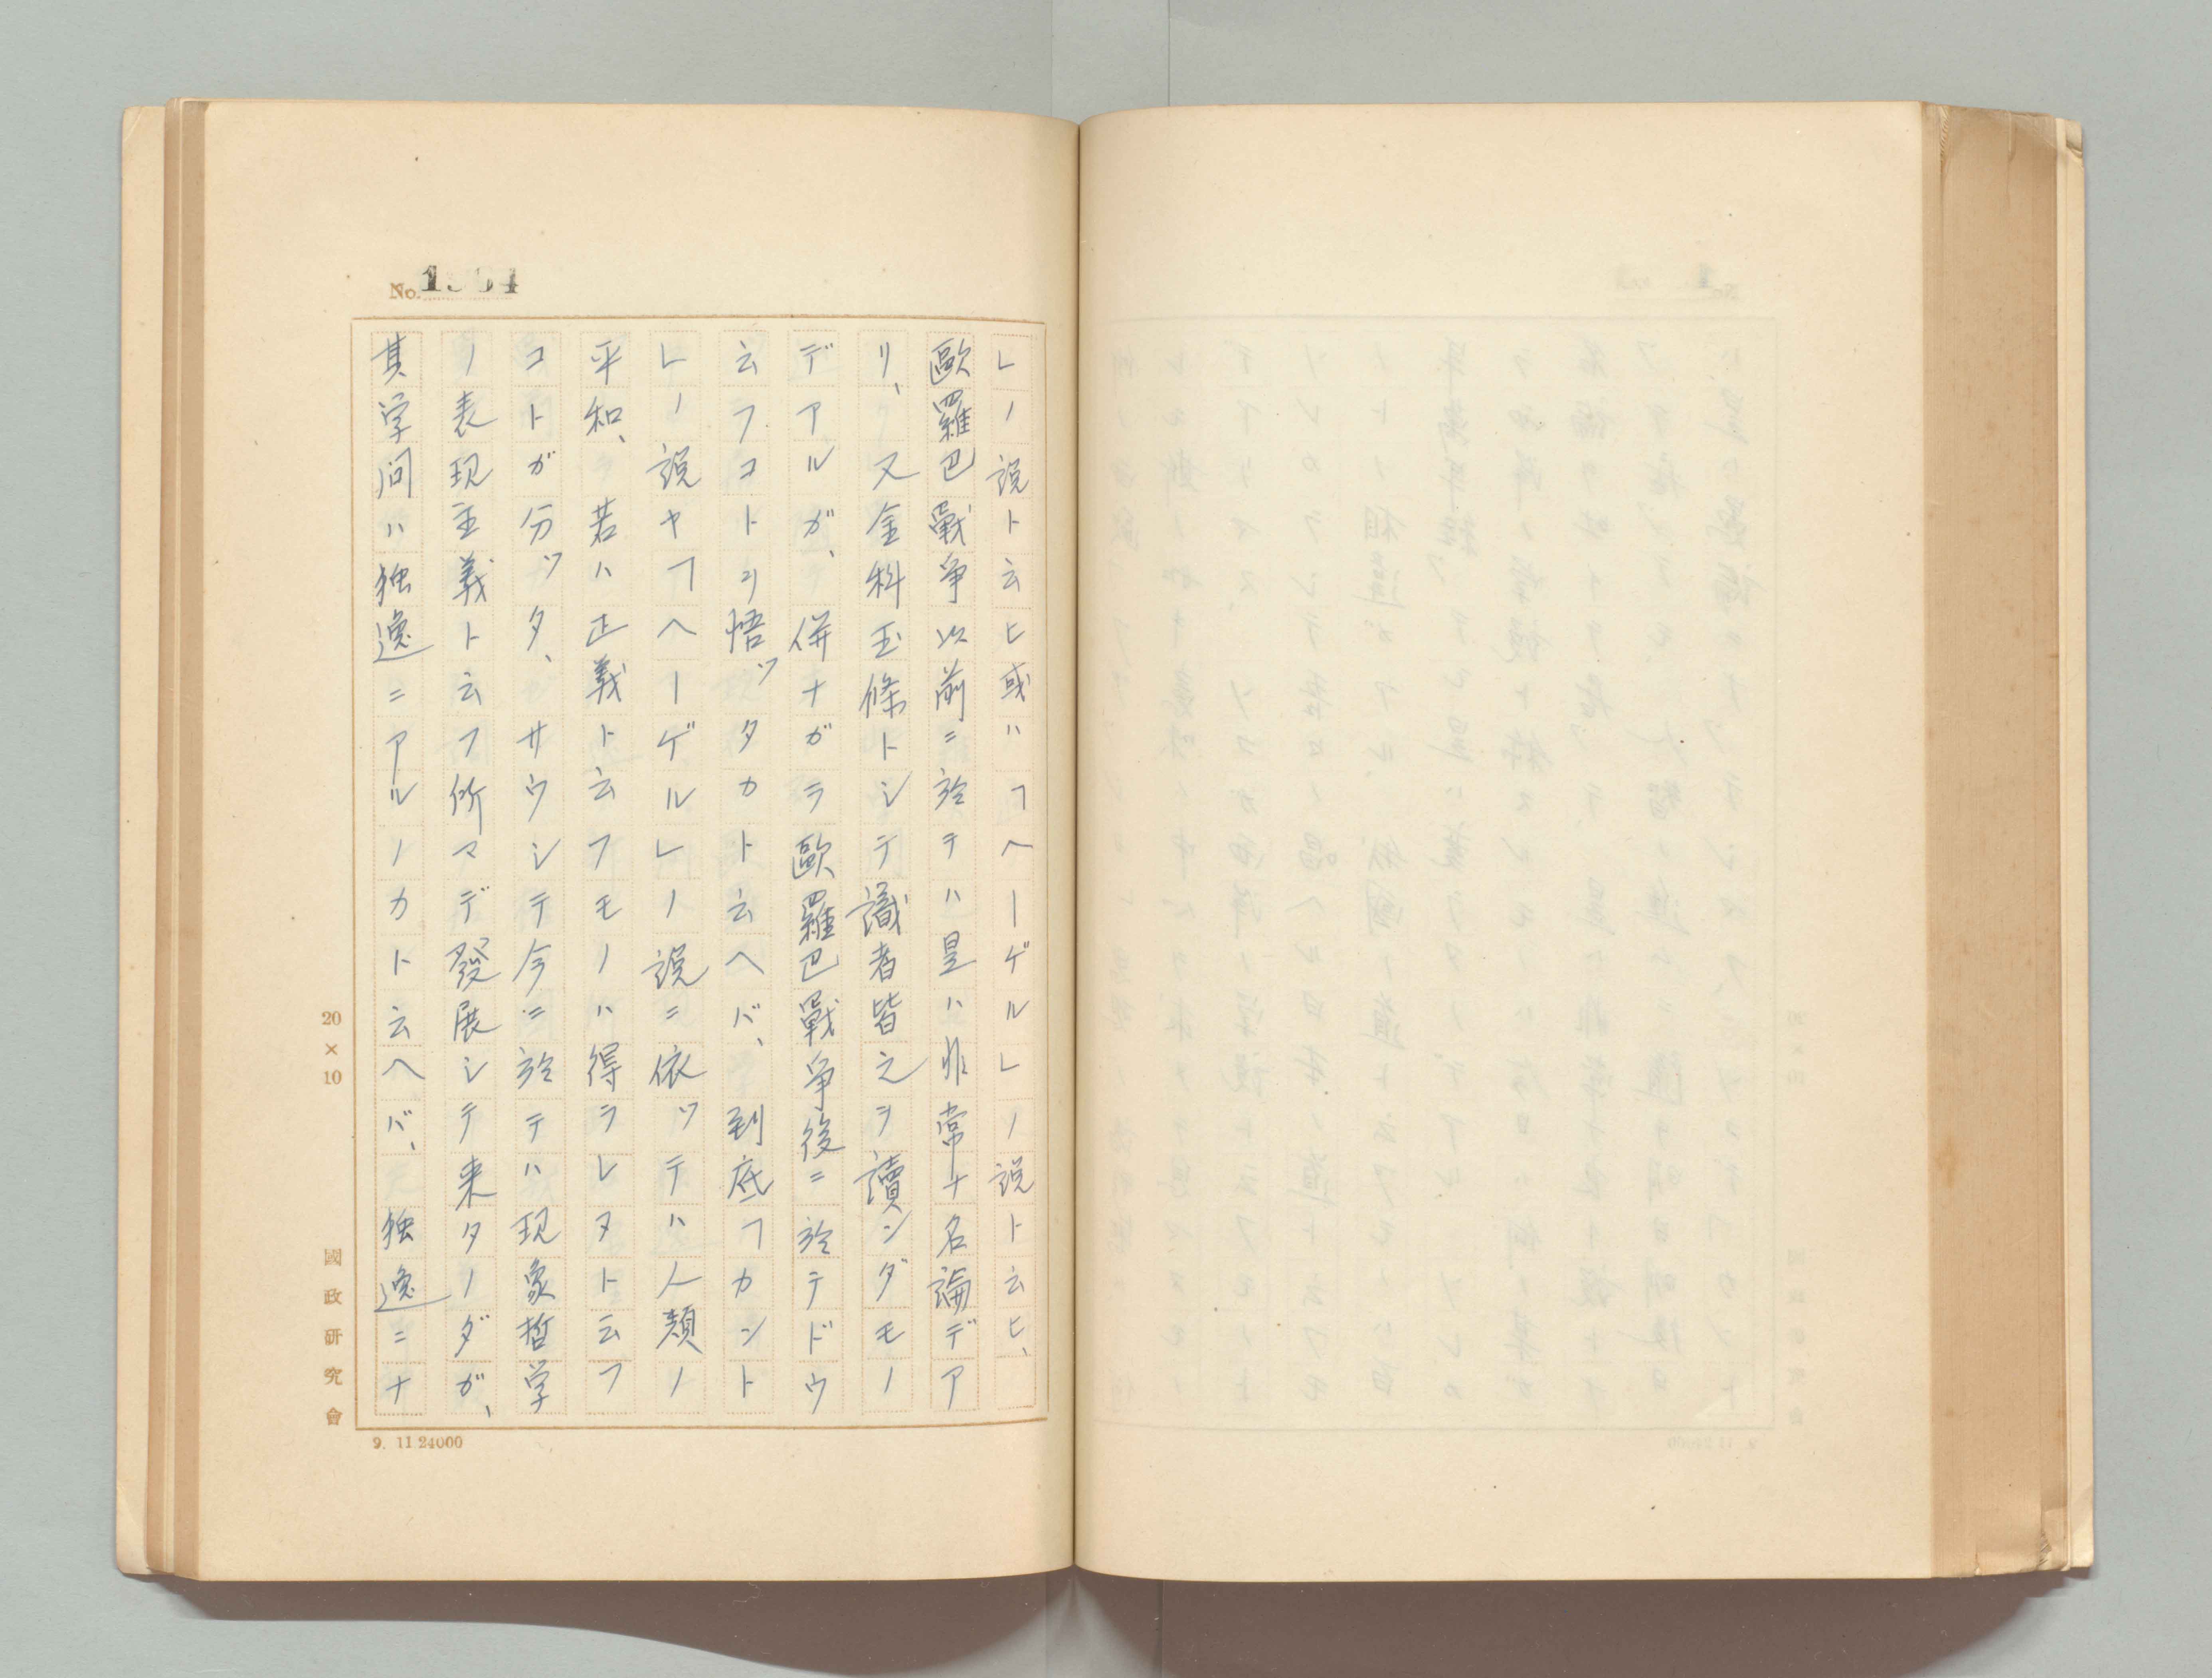 No.
」ノ説ト云ヒ或ハ「ヘーゲル」ノ説ト云ヒ、
歐羅巴戰争以前ニ於テハ是ハ非常ナ名論デア
リ、又金科玉條トシテ識者皆之ヲ讀ンダモノ
デアルガ、併ナガラ歐羅巴戰争後ニ於テドウ
云フコトヲ悟ッタカト云ヘバ、到底「カント
」ノ説ヤ「ヘーゲル」ノ説ニ依ッテハ人類ノ
平和、若ハ正義ト云フモノハ得ラレヌト云フ
コトガ分ッタ、サウシテ今ニ於テハ現象哲学
ノ表現主義ト云フ所マデ發展シテ来タノダガ、
其学問ハ独逸ニアルノカト云ヘバ、独逸ニナ
20×10
國政研究會
9. 11 24000